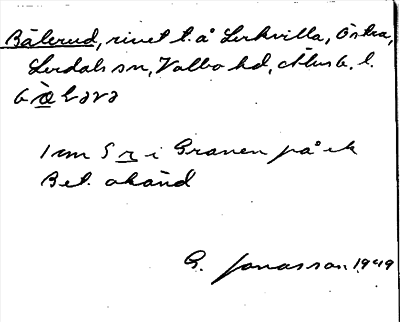 Bälerud, rivet t. å Lerkvilla, Östra,
Lerdals sn, Valbo hd, Älvsb. l.
1 km S r i Granen på ek
Bet. okänd
G. Jonasson 1949